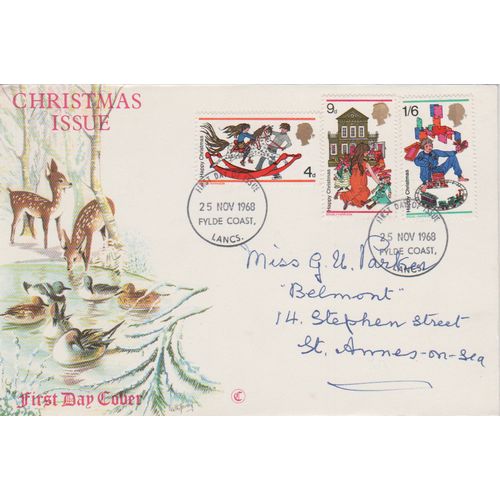 CHRISTMAS
ISSUE
Happy Christmas
4d
9d
Happy Christmas
1/6
Happy Christmas
FIRST DAY OF ISSUE
25 NOV 1968
FYLDE COAST,
LANCS.
FIRST DAY OF ISSUE
25 NOV 1968
FYLDE COAST,
LANCS.
Miss G. U. Parker
"Belmont"
14. Stephen Street
St. Annes-on-Sea
First Day Cover
C